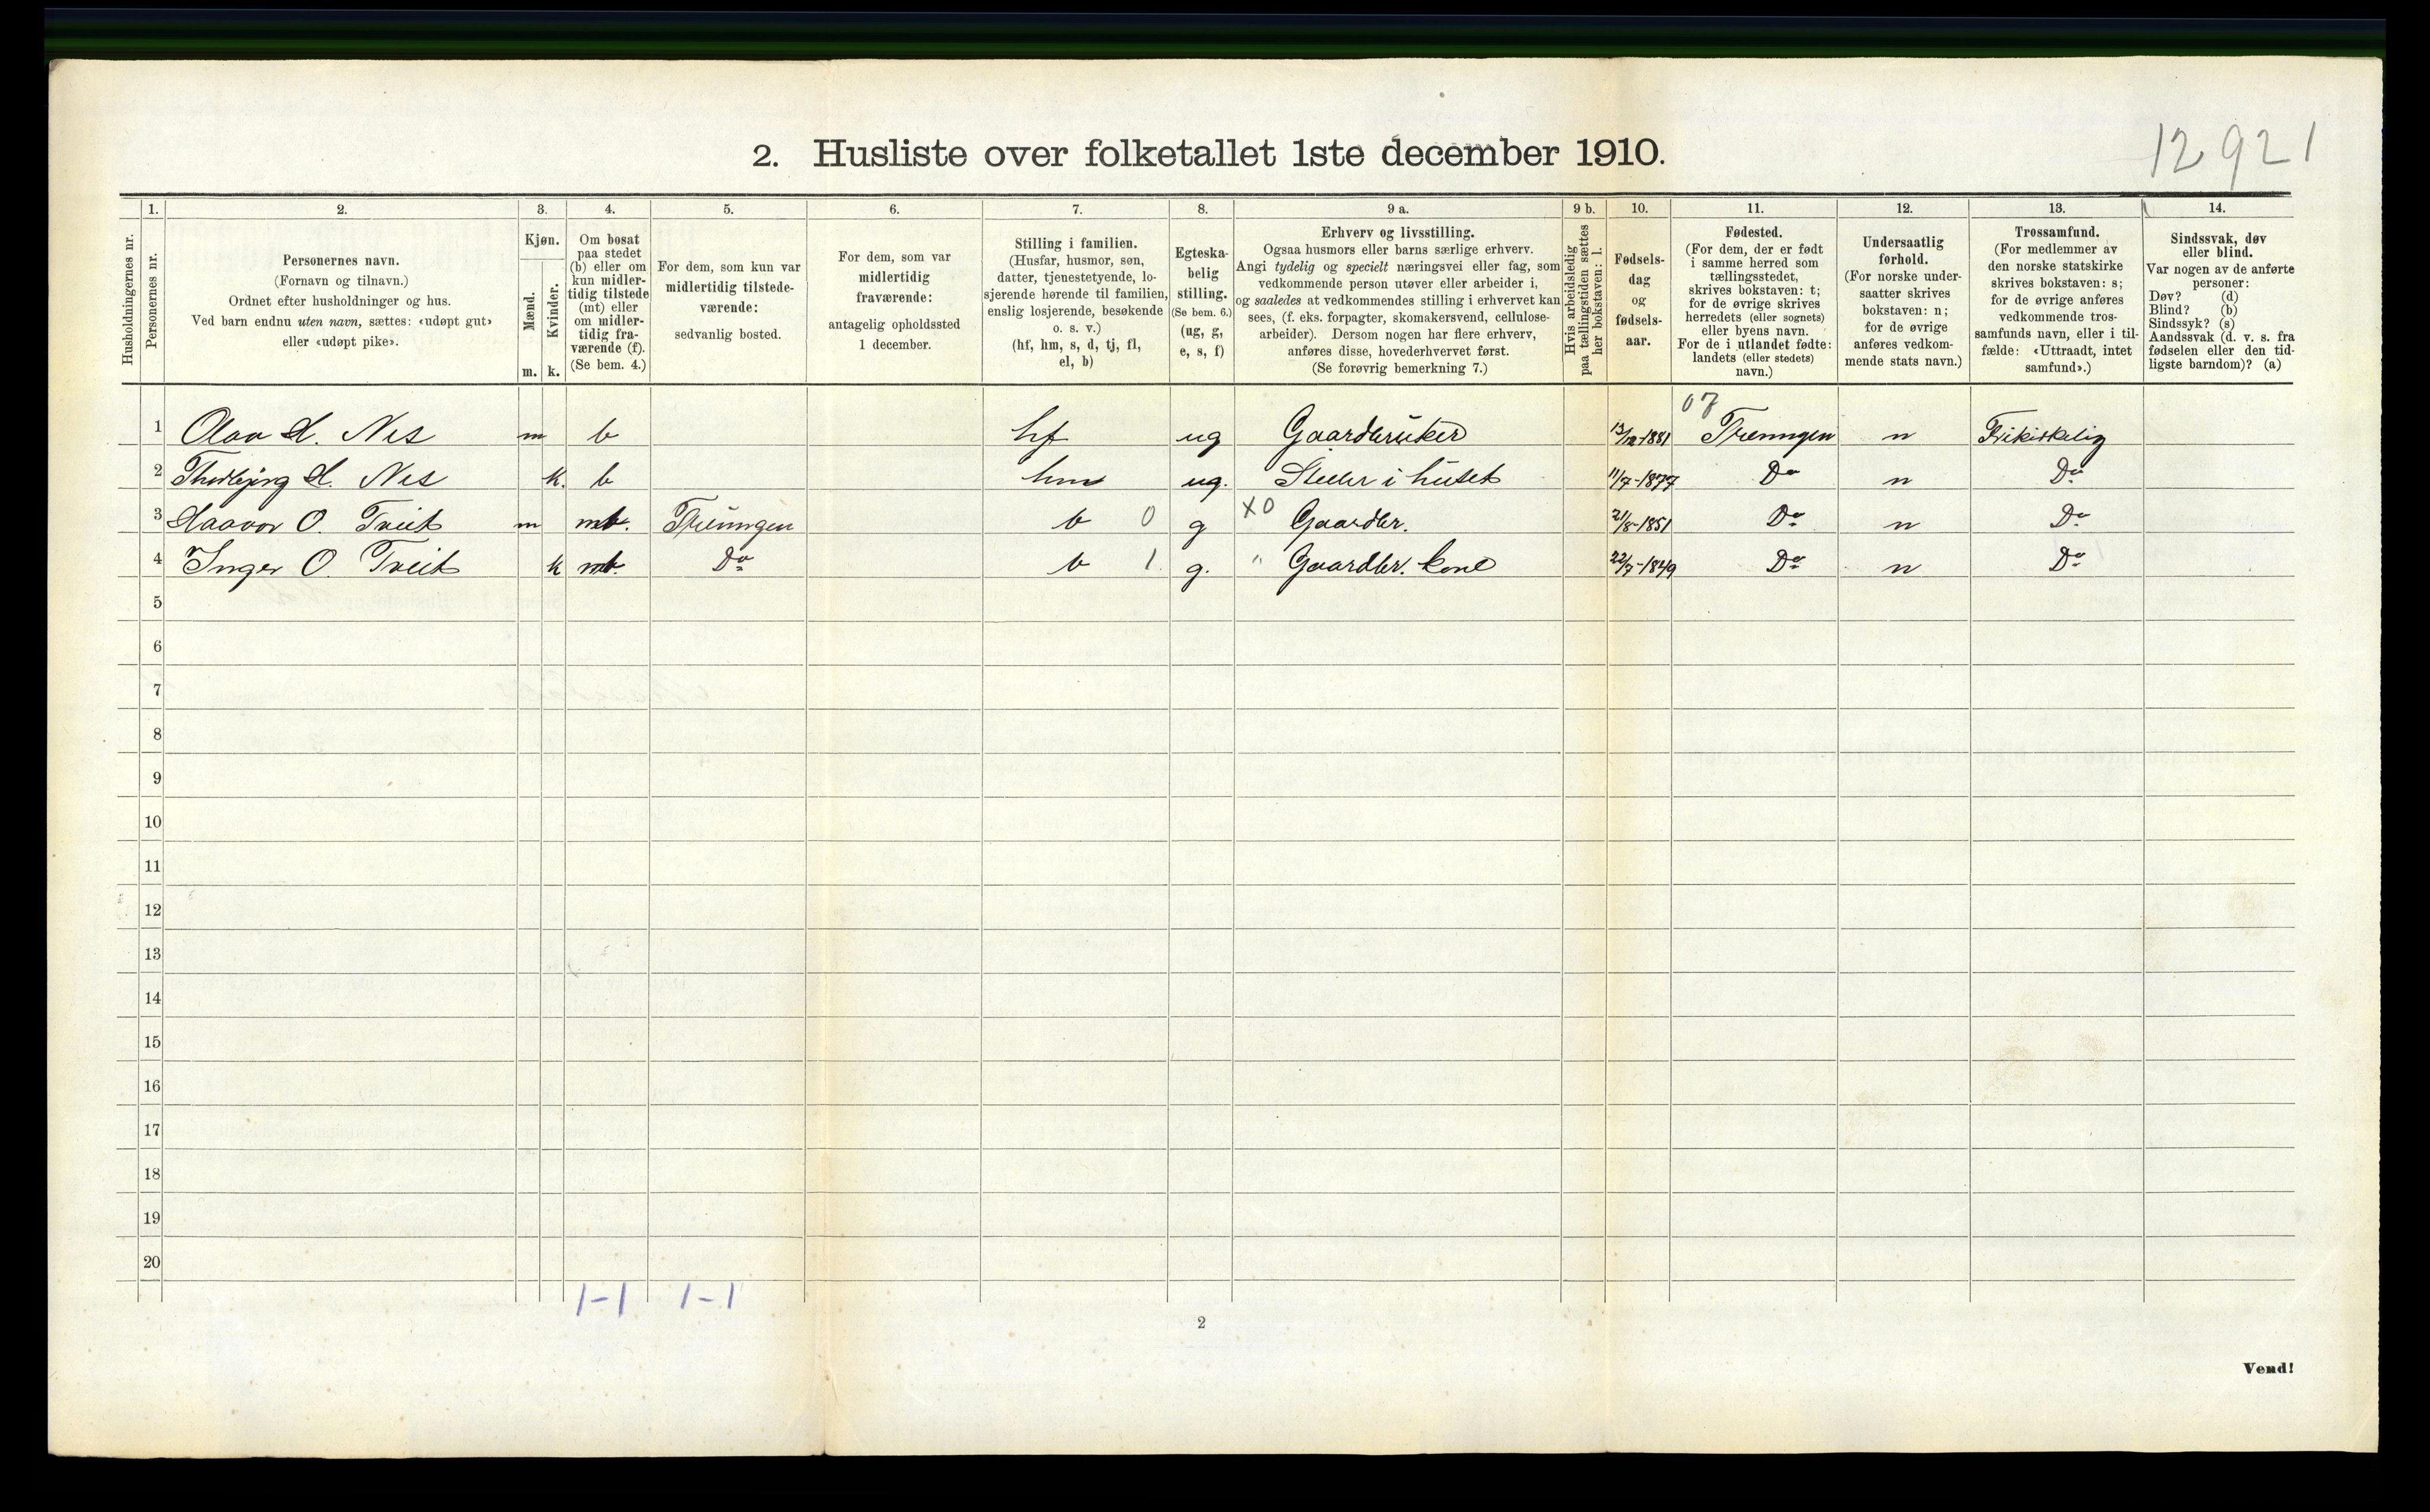 12921
2. Husliste over folketallet 1ste december 1910.
Husholdningernes nr.
1.
Personernes nr.
2.
Personernes navn.
(Fornavn og tilnavn.)
Ordnet efter husholdninger og hus.
Ved barn endnu uten navn, sættes: «udøpt gut»
eller «udøpt pike».
3.
Kjøn.
Mænd.
Kvinder.
m. k.
4.
Om bosat
paa stedet
(b) eller om
kun midler-
tidig tilstede
(mt) eller
om midler-
tidig fra-
værende (f).
(Se bem. 4.)
5.
For dem, som kun var
midlertidig tilstede-
værende:
sedvanlig bosted.
6.
For dem, som var
midlertidig
fraværende:
antagelig opholdssted
1 december.
7.
Stilling i familien.
(Husfar, husmor, søn,
datter, tjenestetyende, lo-
sjerende hørende til familien,
enslig losjerende, besøkende
o. s. v.)
(hf, hm, s, d, tj, fl,
el, b)
8.
Egteska-
belig
stilling.
(Se bem. 6.)
(ug, g,
e, s, f)
9 a.
Erhverv og livsstilling.
Ogsaa husmors eller barns særlige erhverv.
Angi tydelig og specielt næringsvei eller fag, som
vedkommende person utøver eller arbeider i,
og saaledes at vedkommendes stilling i erhvervet kan
sees, (f. eks. forpagter, skomakersvend, cellulose-
arbeider). Dersom nogen har flere erhverv,
anføres disse, hovederhvervet først.
(Se forøvrig bemerkning 7.)
9 b.
Hvis arbeidsledig
paa tællingstiden sættes
her bokstaven: l.
10.
Fødsels-
dag
og
fødsels-
aar.
11.
Fødested.
(For dem, der er født
i samme herred som
tællingsstedet,
skrives bokstaven: t;
for de øvrige skrives
herredets (eller sognets)
eller byens navn.
For de i utlandet fødte:
landets (eller stedets)
navn.)
12.
Undersaatlig
forhold.
(For norske under-
saatter skrives
bokstaven: n;
for de øvrige
anføres vedkom-
mende stats navn.)
13.
Trossamfund.
(For medlemmer av
den norske statskirke
skrives bokstaven: s;
for de øvrige anføres
vedkommende tros-
samfunds navn, eller i til-
fælde: «Uttraadt, intet
samfund».)
14.
Sindssvak, døv
eller blind.
Var nogen av de anførte
personer:
Døv? (d)
Blind? (b)
Sindssyk? (s)
Aandssvak (d. v. s. fra
fødselen eller den tid-
ligste barndom)? (a)
07
1 Olav H. Nes m b hf ug Gaardbruker 13/12-1881 Treungen n Frikirkelig
2 Thorbjørg H. Nes k. b hm ug. Steller i huset 11/7-1877 Do n Do
3 Haavor O. Tveit m mb. Treungen b 0 g X0 Gaardbr. 21/8-1851 Do n Do
4 Inger O. Tveit k mb. Do b 1 g. " Gaardbr. kone 22/7-1849 Do n Do
5
6
7
8
9
10
11
12
13
14
15
16
17
18
19
20
1-1 1-1
2
Vend!